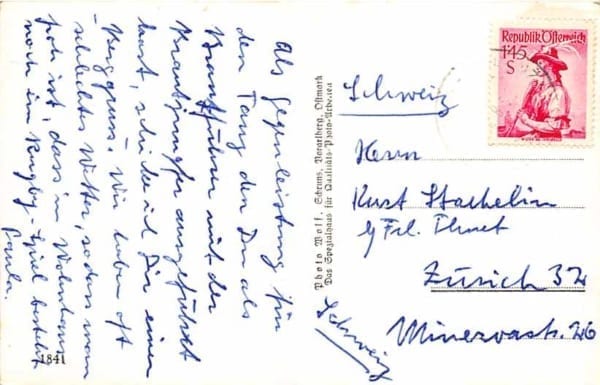 Als Gegenleistung für
den Tanz den Du als
Brautführer mit der
Brautjungfer ausgeführt
hast, schicke ich Dir einen
Berggruss. Wir haben oft
schlechtes Wetter, sodass man
froh ist, dass im Wohnhaus
noch ein Rugby-Spiel besteht
Paula.
1841
Photo Wolf, Schruns, Vorarlberg, Ostmark
Das Spezialhaus für Qualitäts-Photo-Arbeiten
Republik Österreich
1·45
S
Schweiz
Herrn
Kurt Staehelin
Frl.
Zürich 32
Minervastr. 26
Schweiz